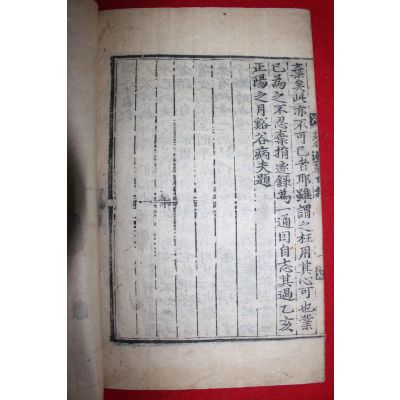 棄矣此亦不可已者耶雖謂之枉用其心可也業
已為之不忍棄捐遂錄為一通因自志其過乙亥
正陽之月谿谷病夫題